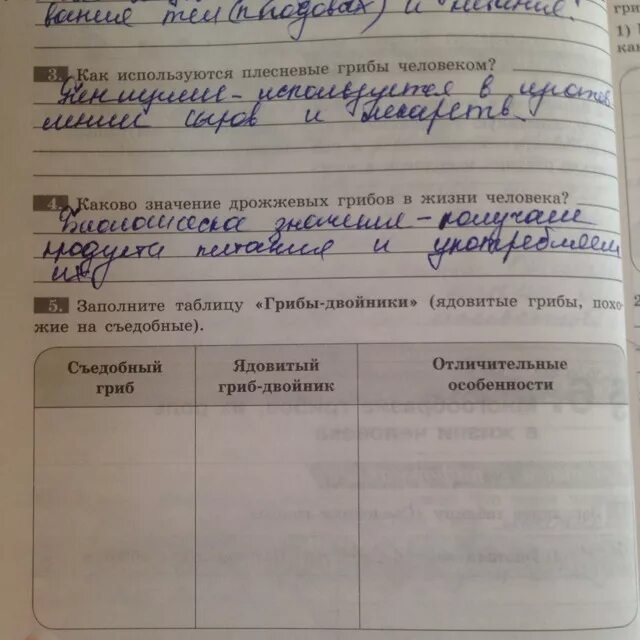 вания тел (плодовых) и питание.
3. Как используются плесневые грибы человеком?
Пенициллин - используется в изготов
лении сыров и лекарств.
4. Каково значение дрожжевых грибов в жизни человека?
значение - получаем
продукта питания и употребляем
их
5. Заполните таблицу «Грибы-двойники» (ядовитые грибы, похо-
жие на съедобные).
Съедобный гриб
Ядовитый гриб-двойник
Отличительные особенности
гри
1)
2